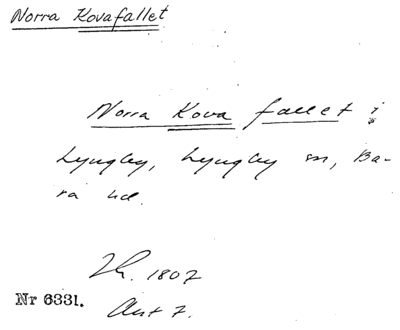 Norra Kovafallet
Norra Kova fallet i
Lyngby, Lyngby sn, Ba-
ra hd.
1807
Nr 6331.
Akt 7.